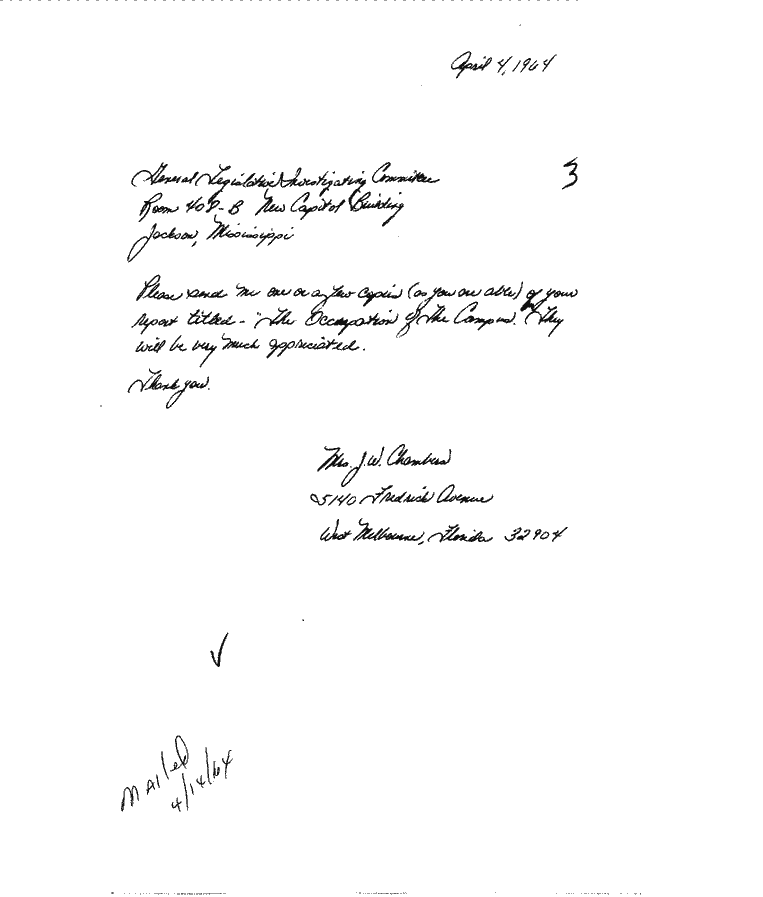 April 4, 1964
3
General Legislative Investigating Committee
Room 409-B New Capitol Building
Jackson, Mississippi
Please send me one or a few copies (as you are able) of your
report titled - "The Occupation of the Campus." They
will be very much appreciated.
Thank you.
Mrs. J.W. Chambers
5140 Fredrick Avenue
West Melbourne, Florida 32904
✓
Mailed
4/14/64